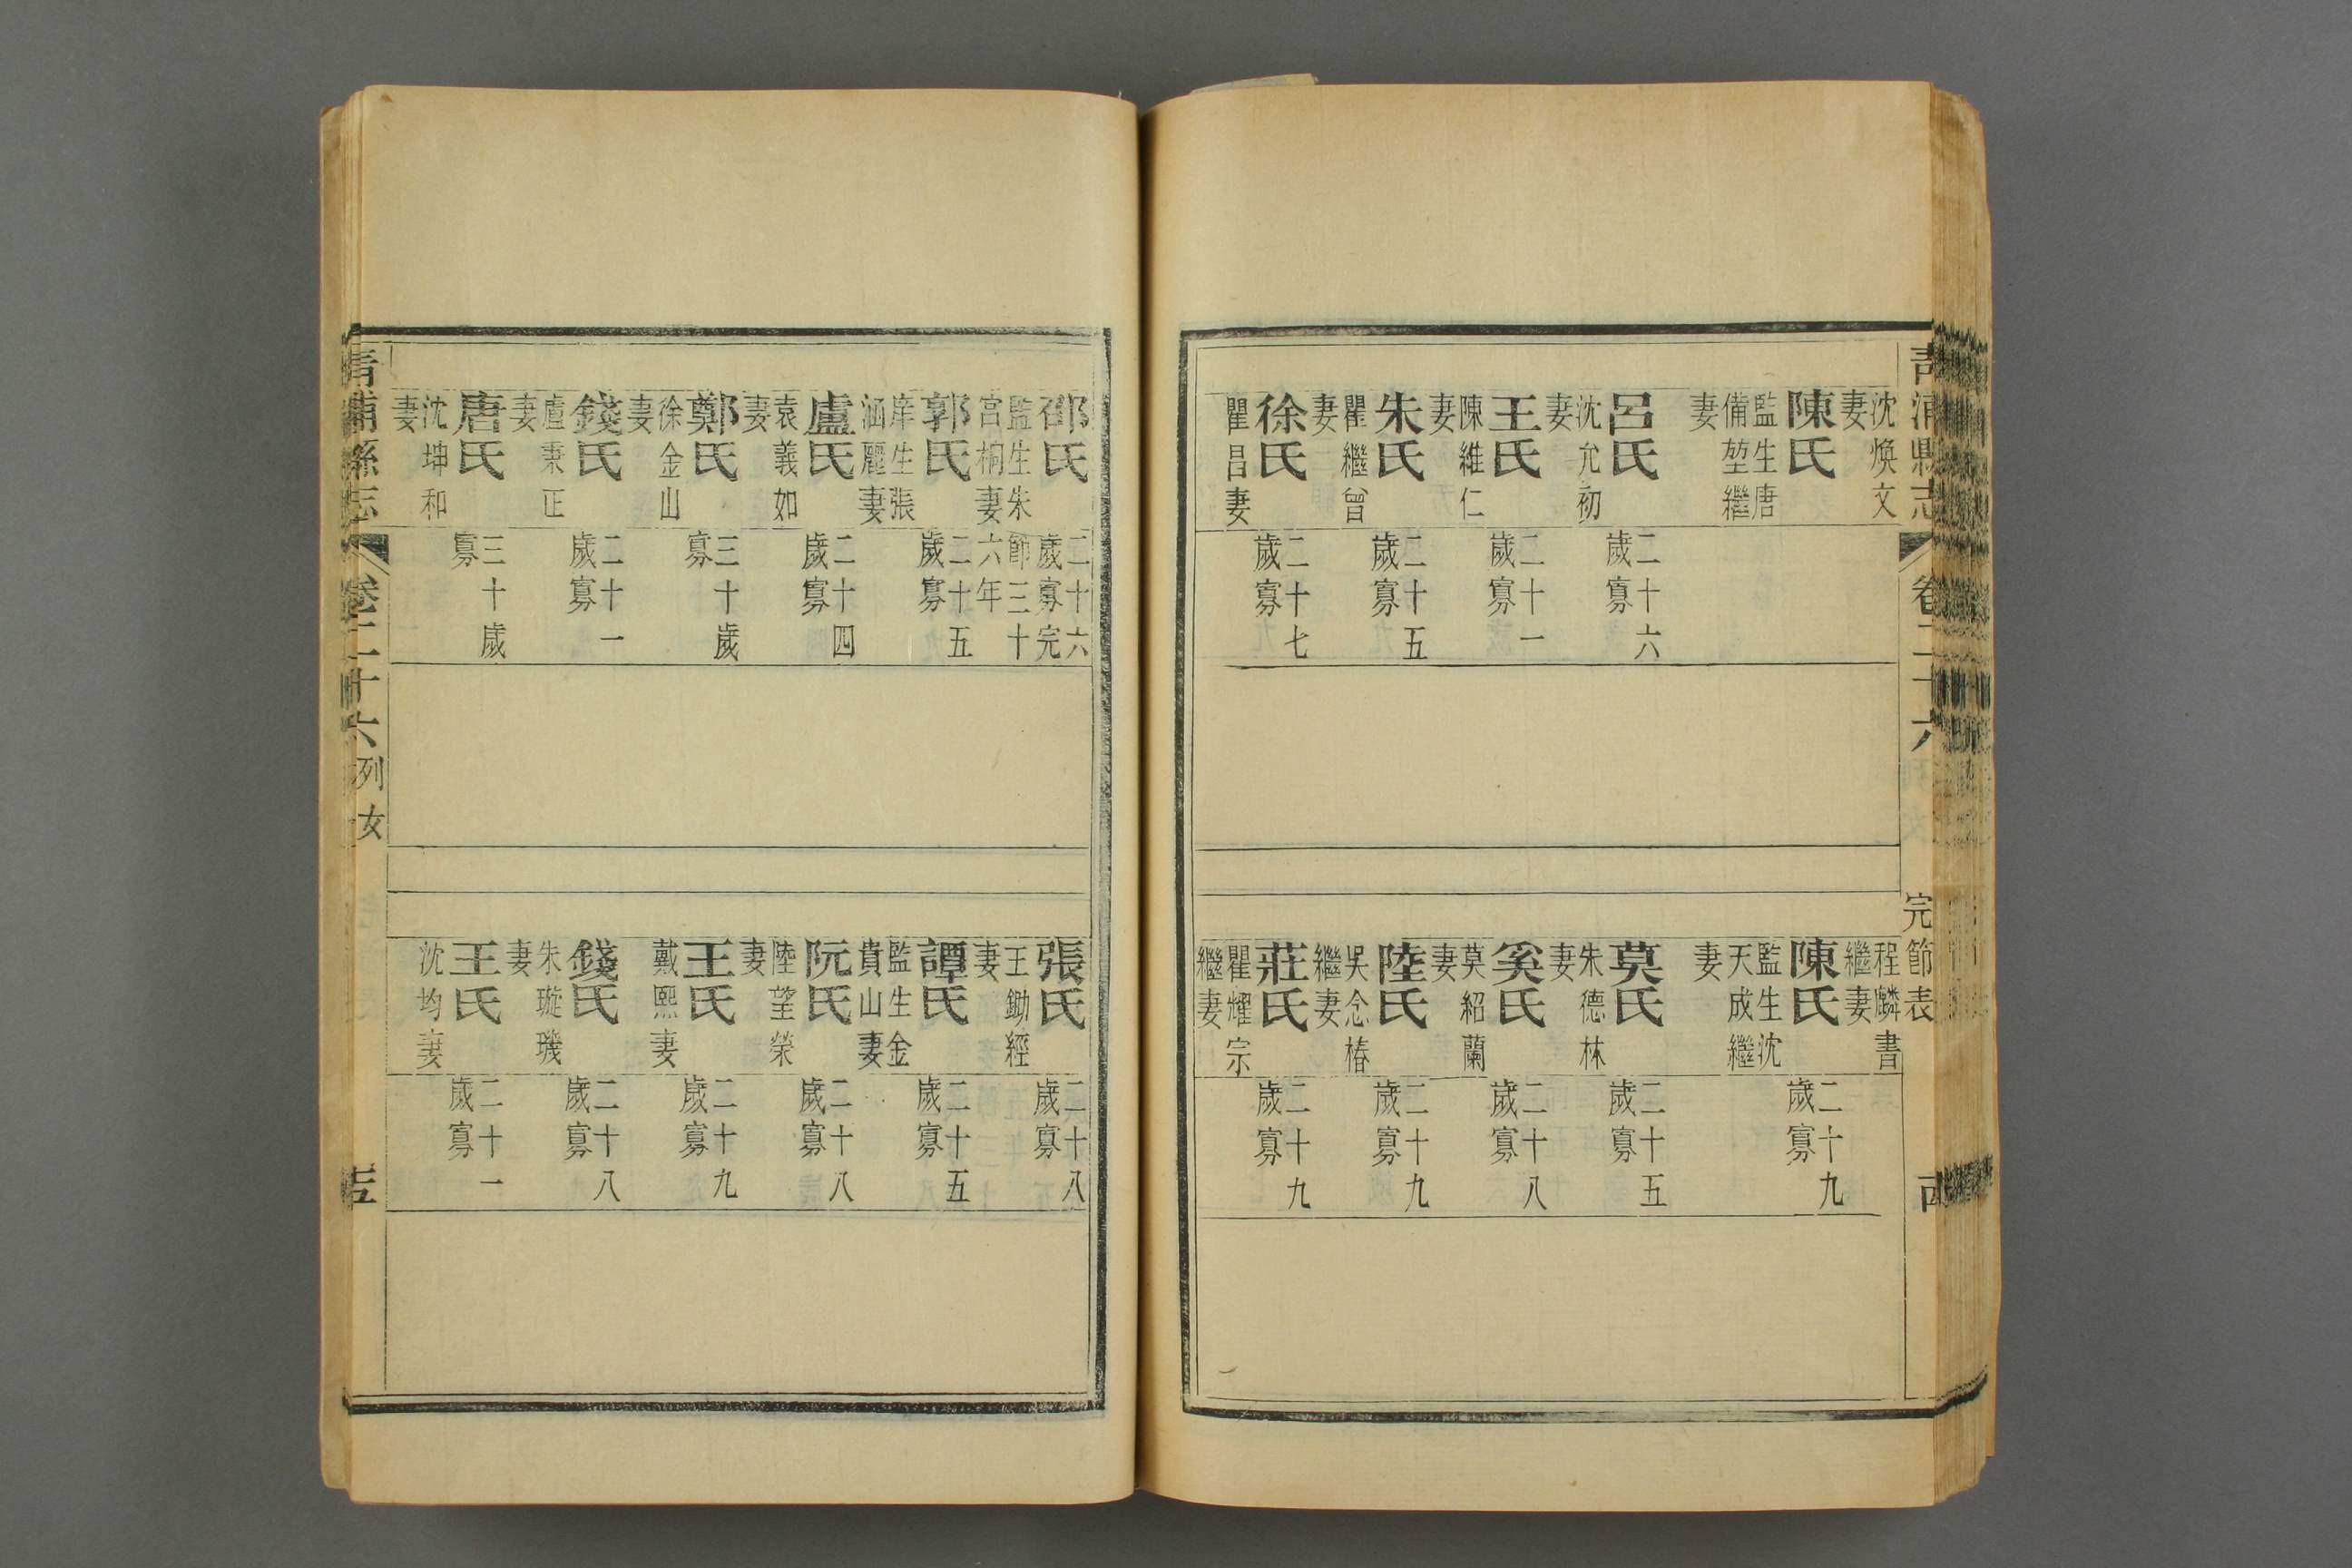 青浦縣志
卷二十六
沈煥文
妻
陳氏
監生唐
備堃繼
妻
呂氏
沈允初
妻
二十六
歲寡
王氏
陳維仁
妻
二十一
歲寡
朱氏
瞿繼曾
妻
二十五
歲寡
徐氏
瞿昌妻
二十七
歲寡
完節表
程麟書
繼妻
陳氏
監生沈
天成繼
妻
二十九
歲寡
莫氏
朱德林
妻
二十五
歲寡
奚氏
莫紹蘭
妻
二十八
歲寡
陸氏
吳念椿
繼妻
二十九
歲寡
莊氏
瞿燿宗
繼妻
二十九
歲寡
邵氏
監生朱
宮桐妻
二十六
歲寡完
節三十
六年
郭氏
庠生張
涵麗妻
二十五
歲寡
盧氏
袁義如
妻
二十四
歲寡
鄭氏
徐金山
妻
三十歲
寡
錢氏
盧秉正
妻
二十一
歲寡
唐氏
沈坤和
妻
三十歲
寡
張氏
王鋤經
妻
二十八
歲寡
譚氏
監生金
貴山妻
二十五
歲寡
阮氏
陸望榮
妻
二十八
歲寡
王氏
戴熙妻
二十九
歲寡
錢氏
朱璇璣
妻
二十八
歲寡
王氏
沈均妻
二十一
歲寡
青浦縣志
卷二十六列女